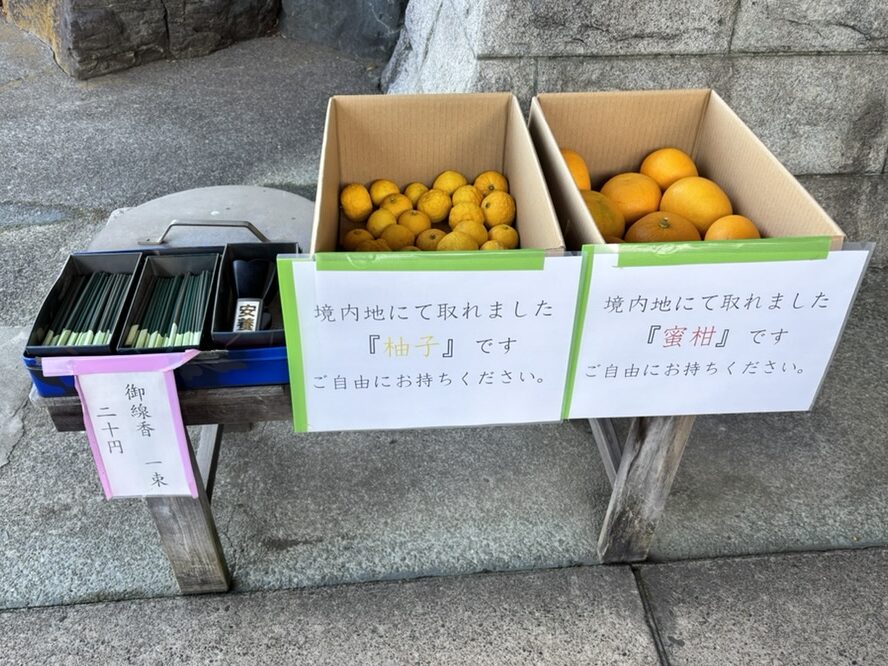 御線香 一束
二十円
安養
境内地にて取れました
『柚子』です
ご自由にお持ちください。
境内地にて取れました
『蜜柑』です
ご自由にお持ちください。